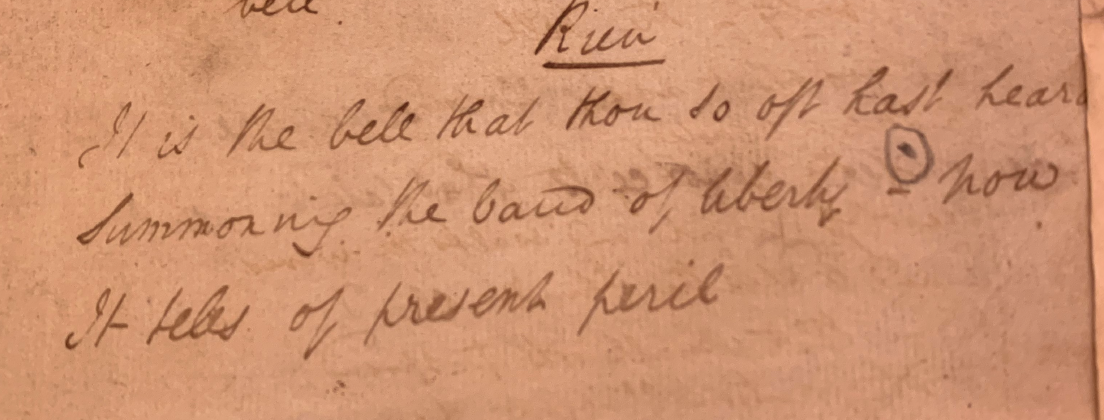 bell.
Rien
It is the bell that thou so oft hast heard
Summoning the band of liberty – now
It tells of present peril